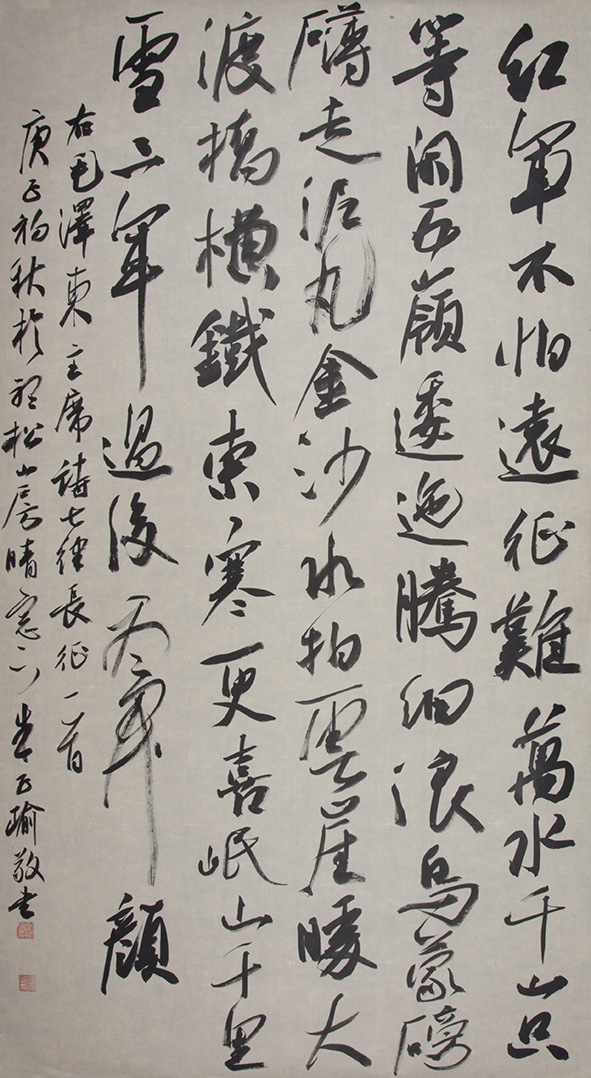 紅軍不怕遠征難萬水千山只
等閑五嶺逶迤騰細浪烏蒙磅
礴走泥丸金沙水拍雲崖暖大
渡橋橫鐵索寒更喜岷山千里
雪三軍過後盡開顏
右毛澤東主席詩七律長征一首
庚子初秋於松山房晴窗下瑜敬书